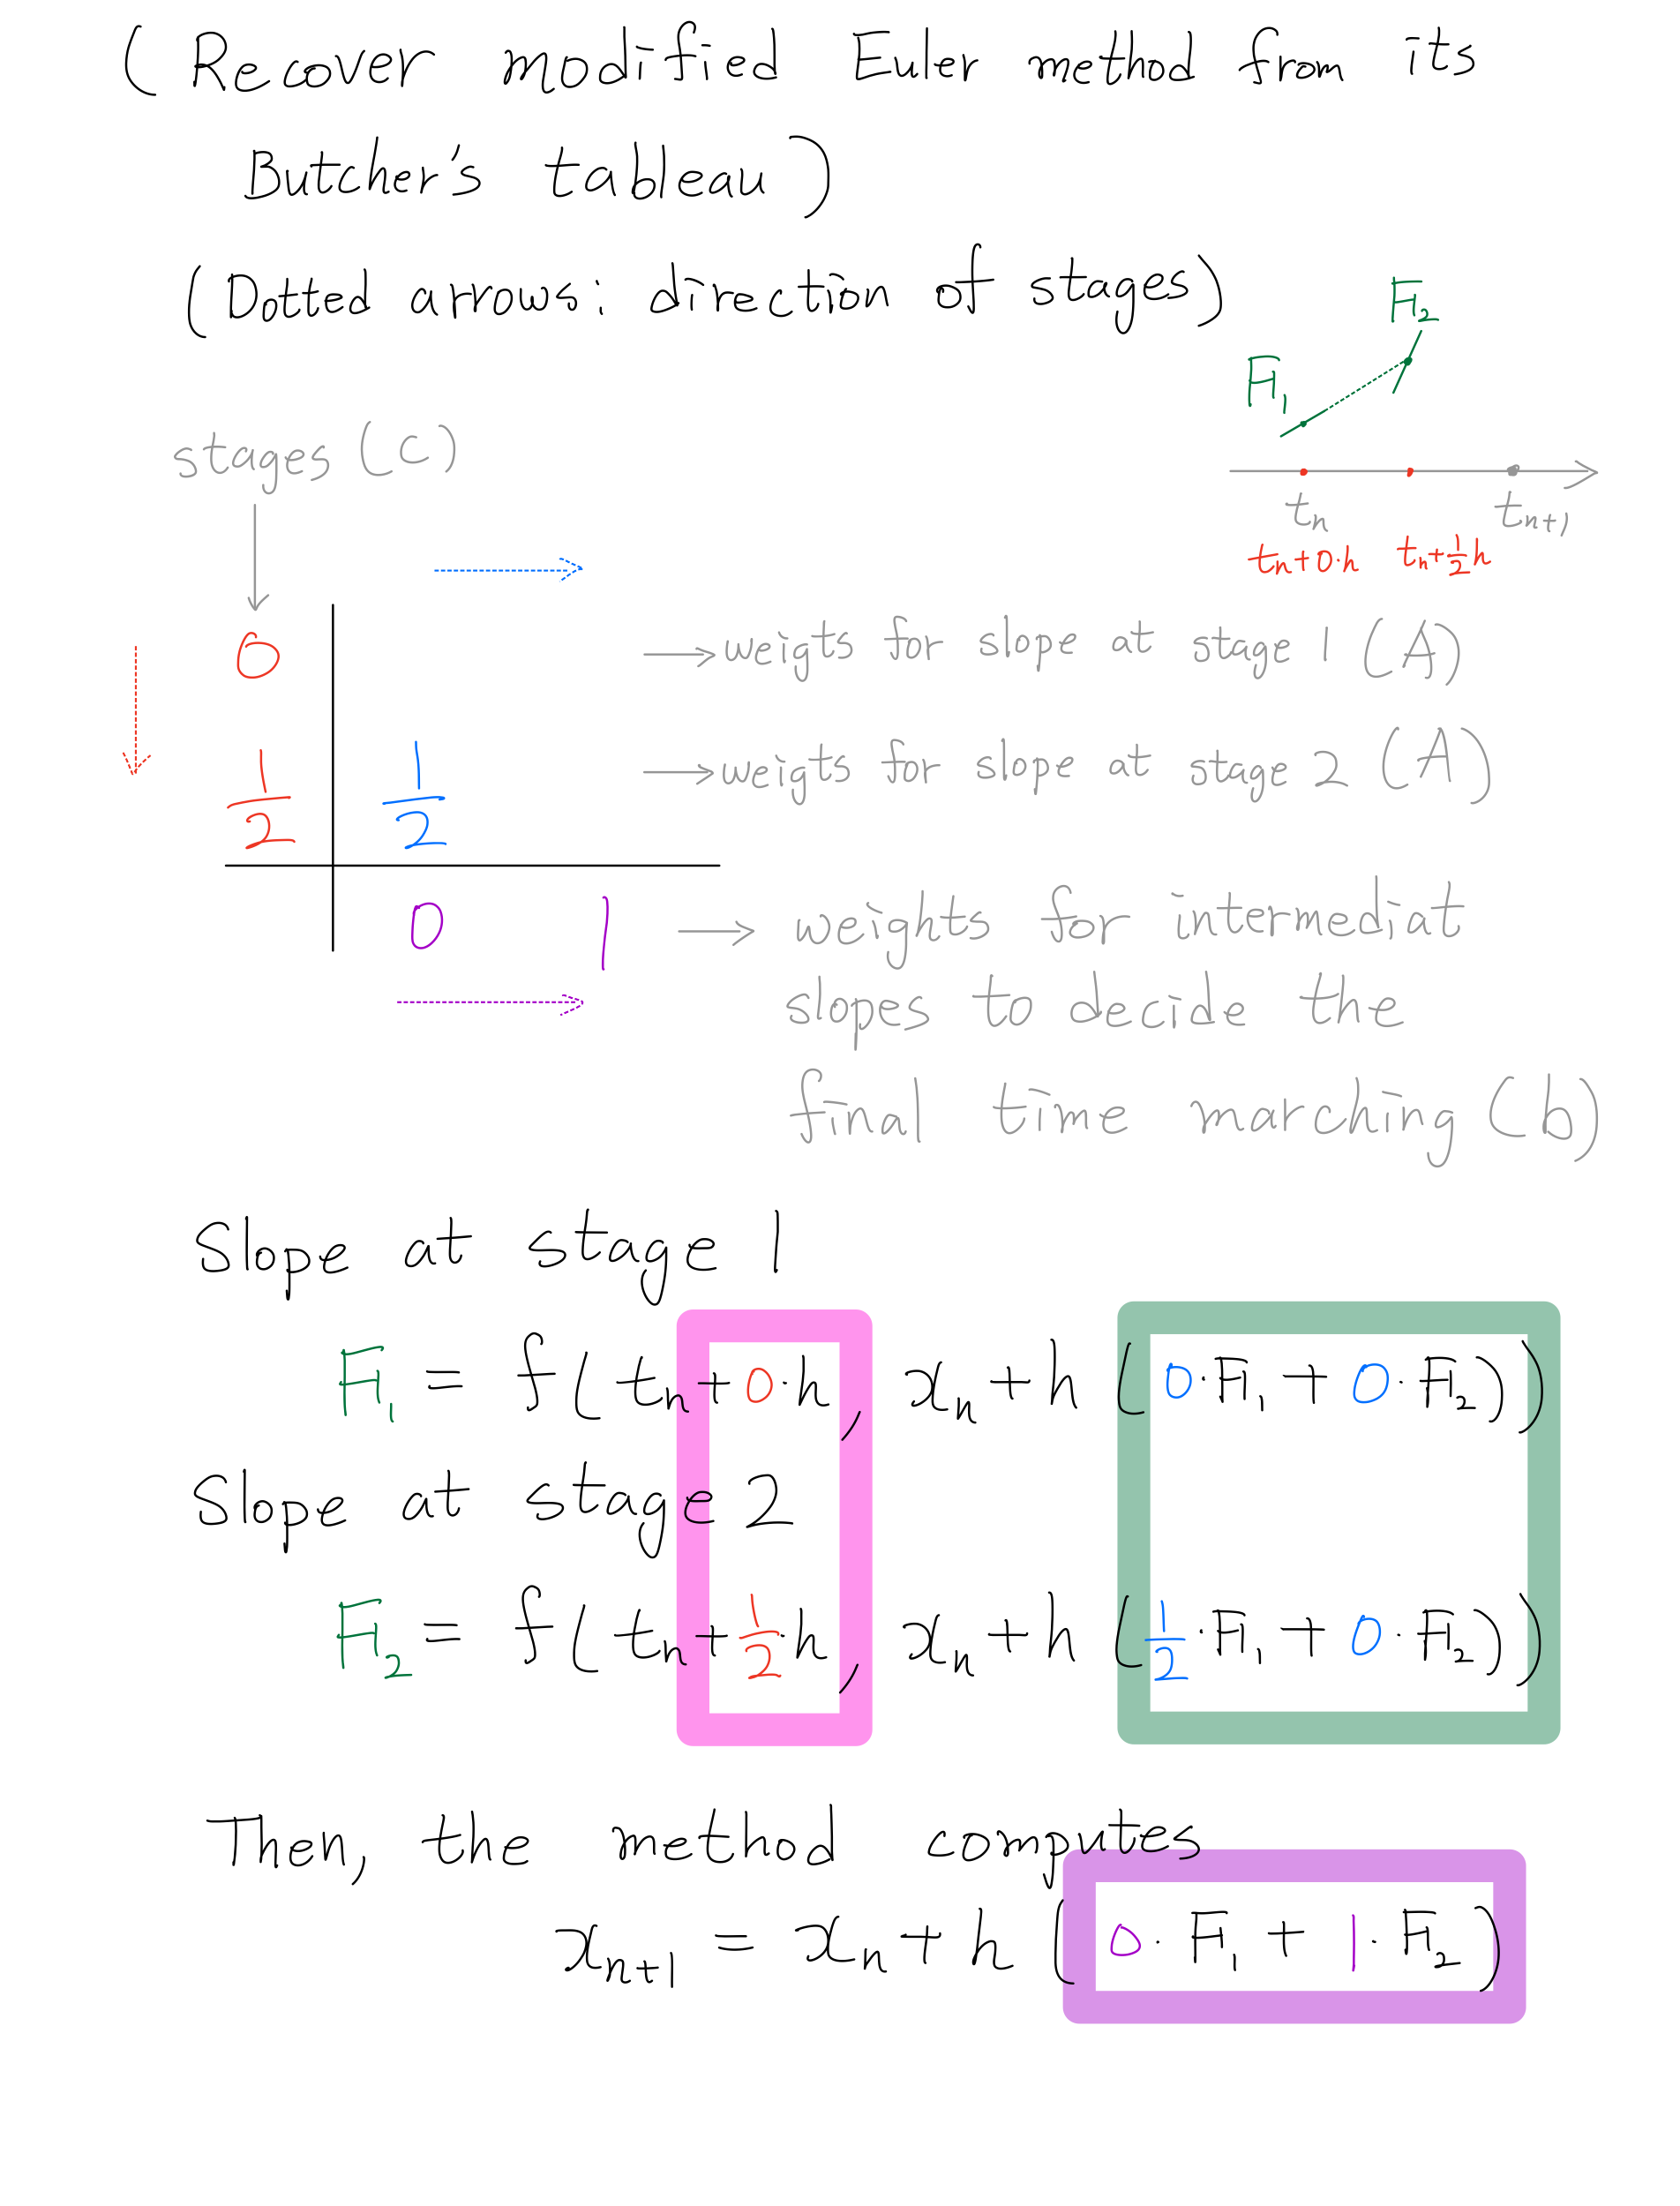 (Recover modified Euler method from its
Butcher's tableau)
(Dotted arrows: direction of stages)
F₂
F₁
stages (c)
tₙ tₙ₊₁
tₙ+0·h tₙ+½h
0 → weigts for slope at stage 1 (A)
½ ½ → weigts for slope at stage 2 (A)
0 1 → weights for intermediat
slopes to decide the
final time marching (b)
Slope at stage 1
F₁ = f(tₙ+0·h, xₙ+h(0·F₁+0·F₂))
Slope at stage 2
F₂ = f(tₙ+½·h, xₙ+h(½·F₁+0·F₂))
Then, the method computes
xₙ₊₁ = xₙ+h(0·F₁+1·F₂)